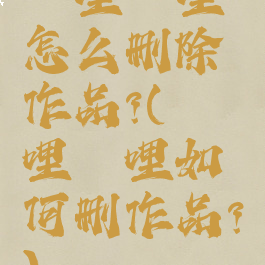 哩 哩
怎么删除
作品?(
哩 哩如
何删作品?
)